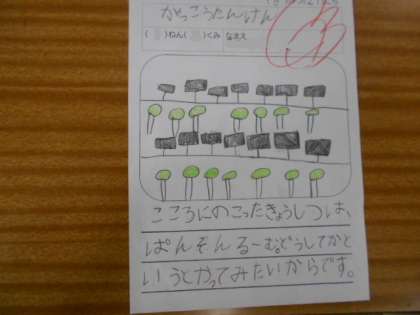 がっこうたんけん
( )ねん( )くみ なまえ
こころにのこったきょうしつは、
ぱんそんるーむ。どうしてかと
いうとかってみたいからです。